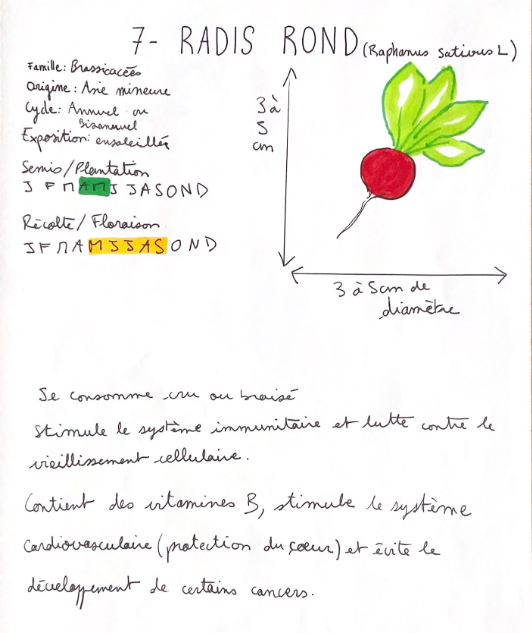 7- RADIS ROND (Raphanus sativus L)
Famille: Brassicacées
Origine: Asie mineure
Cycle: Annuel ou
Bisannuel
Exposition: ensoleillée
Semis/Plantation
J F M A M J J A S O N D
Récolte/Floraison
J F M A M J J A S O N D
3 à
5
cm
3 à 5 cm de
diamètre
Se consomme cru ou braisé
Stimule le système immunitaire et lutte contre le
vieillissement cellulaire.
Contient des vitamines B, stimule le système
cardiovasculaire (protection du coeur) et évite le
développement de certains cancers.